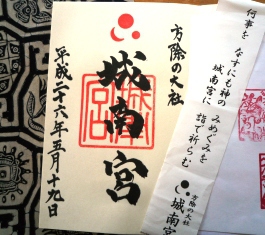 方除の大社
城南宮
平成二十六年五月十九日
何事を なすにも神の
城南宮に
みめぐみを
詣で祈らむ
方除の大社
城南宮